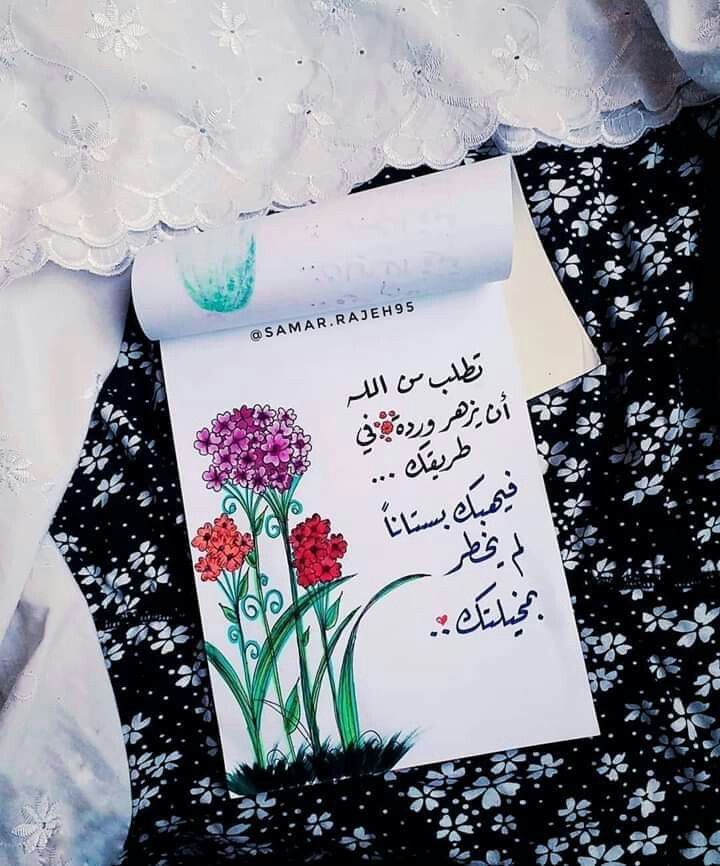 @SAMAR.RAJEH95
تطلب من الله
أن يزهر وردة في
طريقك ...
فيهبك بستاناً
لم يخطر
بمخيلتك ..